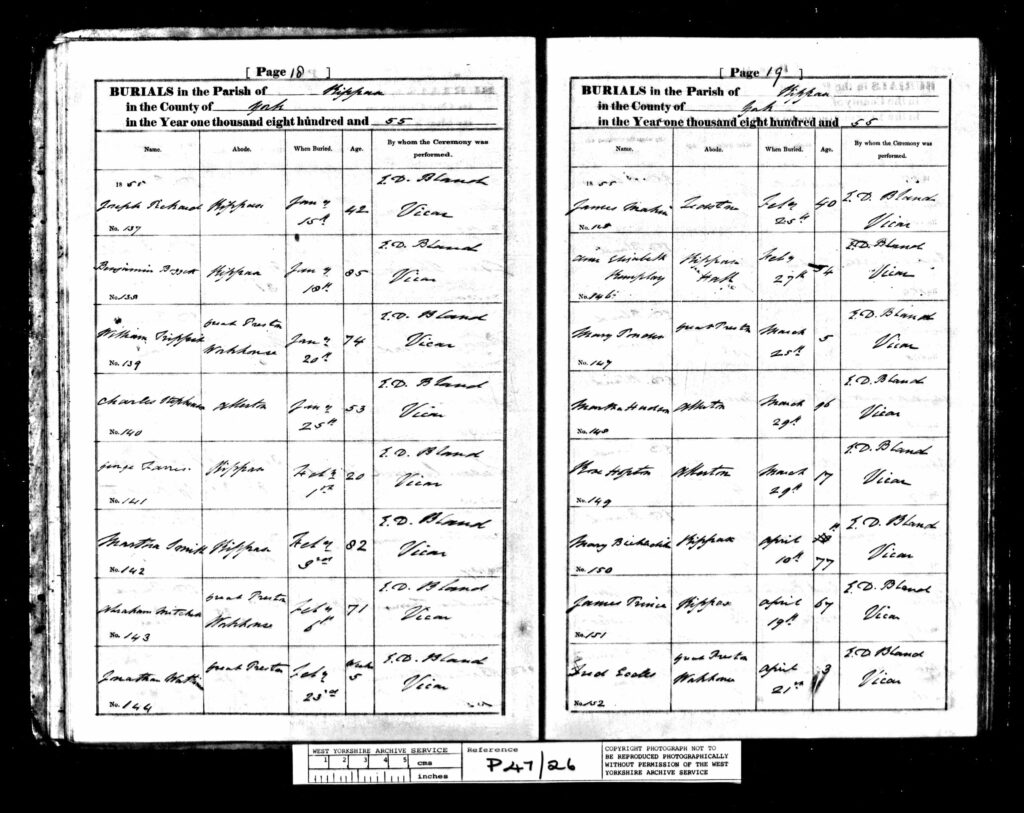 [ Page 18 ]
BURIALS in the Parish of Kippax
in the County of York
in the Year one thousand eight hundred and 55
Name. Abode. When Buried. Age. By whom the Ceremony was performed.
1855
Joseph Kippax Jany 15th 42 E. D. Bland Vicar
No. 137
Benjamin Kippax Jany 18th 85 E. D. Bland Vicar
No. 138
William Great Preston Workhouse Jany 20th 74 E. D. Bland Vicar
No. 139
Charles Stephenson Allerton Jany 25th 53 E. D. Bland Vicar
No. 140
George Kippax Feby 1st 20 E. D. Bland Vicar
No. 141
Martha Smith Kippax Feby 82 E. D. Bland Vicar
No. 142
Abraham Mitchell Great Preston Workhouse Feby 6th 71 E. D. Bland Vicar
No. 143
Jonathan Great Preston Feby 23rd Weeks 5 E. D. Bland Vicar
No. 144
[ Page 19 ]
BURIALS in the Parish of Kippax
in the County of York
in the Year one thousand eight hundred and 55
Name. Abode. When Buried. Age. By whom the Ceremony was performed.
1855
James Ledston Feby 25th 40 E. D. Bland Vicar
No.
Elizabeth Kippax Hall Feby 27th E. D. Bland Vicar
No. 146
Mary Great Preston March 25th 5 E. D. Bland Vicar
No. 147
Martha Hudson Allerton March 29th E. D. Bland Vicar
No. 148
Hopton Allerton March 29th 17 E. D. Bland Vicar
No. 149
Mary Kippax April 10th 77 E. D. Bland Vicar
No. 150
James Prince Kippax April 19th 67 E. D. Bland Vicar
No. 151
Eccles Great Preston Workhouse April 21st 3 E. D. Bland Vicar
No. 152
WEST YORKSHIRE ARCHIVE SERVICE
1 2 3 4 5 cms
inches
Reference
P47/26
COPYRIGHT PHOTOGRAPH NOT TO
BE REPRODUCED PHOTOGRAPHICALLY
WITHOUT PERMISSION OF THE WEST
YORKSHIRE ARCHIVE SERVICE